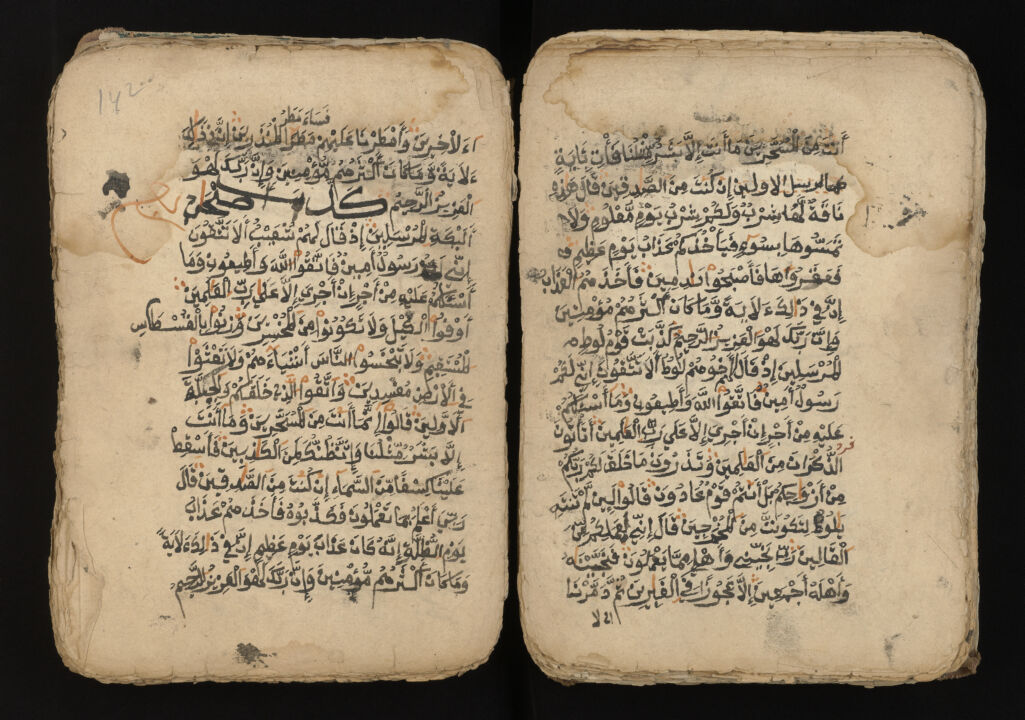 أنت من المسحرين ما أنت إلا بشر مثلنا فأت بئاية
إن كنت من الصدقين قال هذه
ناقة لها شرب ولكم شرب يوم معلوم ولا
تمسوها بسوء فيأخذكم عذاب يوم عظيم
فعقروها فأصبحوا ندمين فأخذهم العذاب
إن في ذلك ءلاية وما كان أكثرهم مؤمنين
وإن ربك لهو العزيز الرحيم كذبت قوم لوط
المرسلين إذ قال لهم أخوهم لوط ألا تتقون إني لكم
رسول أمين فاتقوا الله وأطيعون وما أسئلكم
عليه من أجر إن أجري إلا على رب العلمين أتأتون
الذكران من العلمين وتذرون ما خلق لكم ربكم
من أزوجكم بل أنتم قوم عادون قالوا لين لم تنته
يلوط لتكونن من المخرجين قال إني لعملكم من
القالين رب نجني وأهلي مما يعملون فنجينه
وأهله أجمعين إلا عجوزا في الغبرين ثم دمرنا
فساء مطر
ءلاخرين وأمطرنا عليهم مطرا المنذرين إن في ذلك
ءلاية وما كان أكثرهم مؤمنين وإن ربك لهو
العزيز الرحيم كذب أصحب
ليكة المرسلين إذ قال لهم شعيب ألا تتقون
إني لكم رسول أمين فاتقوا الله وأطيعون وما
أسئلكم عليه من أجر إن أجري إلا على رب العلمين
أوفوا الكيل ولا تكونوا من المخسرين وزنوا بالقسطاس
المستقيم ولا تبخسوا الناس أشياءهم ولا تعثوا
في الأرض مفسدين واتقوا الذي خلقكم والجبلة
الأولين قالوا إنما أنت من المسحرين وما أنت
إلا بشر مثلنا وإن نظنك لمن الكذبين فأسقط
علينا كسفا من السماء إن كنت من الصدقين قال
ربي أعلم بما تعملون فكذبوه فأخذهم عذاب
يوم الظلة إنه كان عذاب يوم عظيم إن في ذلك ءلاية
وما كان أكثرهم مؤمنين وإن ربك لهو العزيز الرحيم